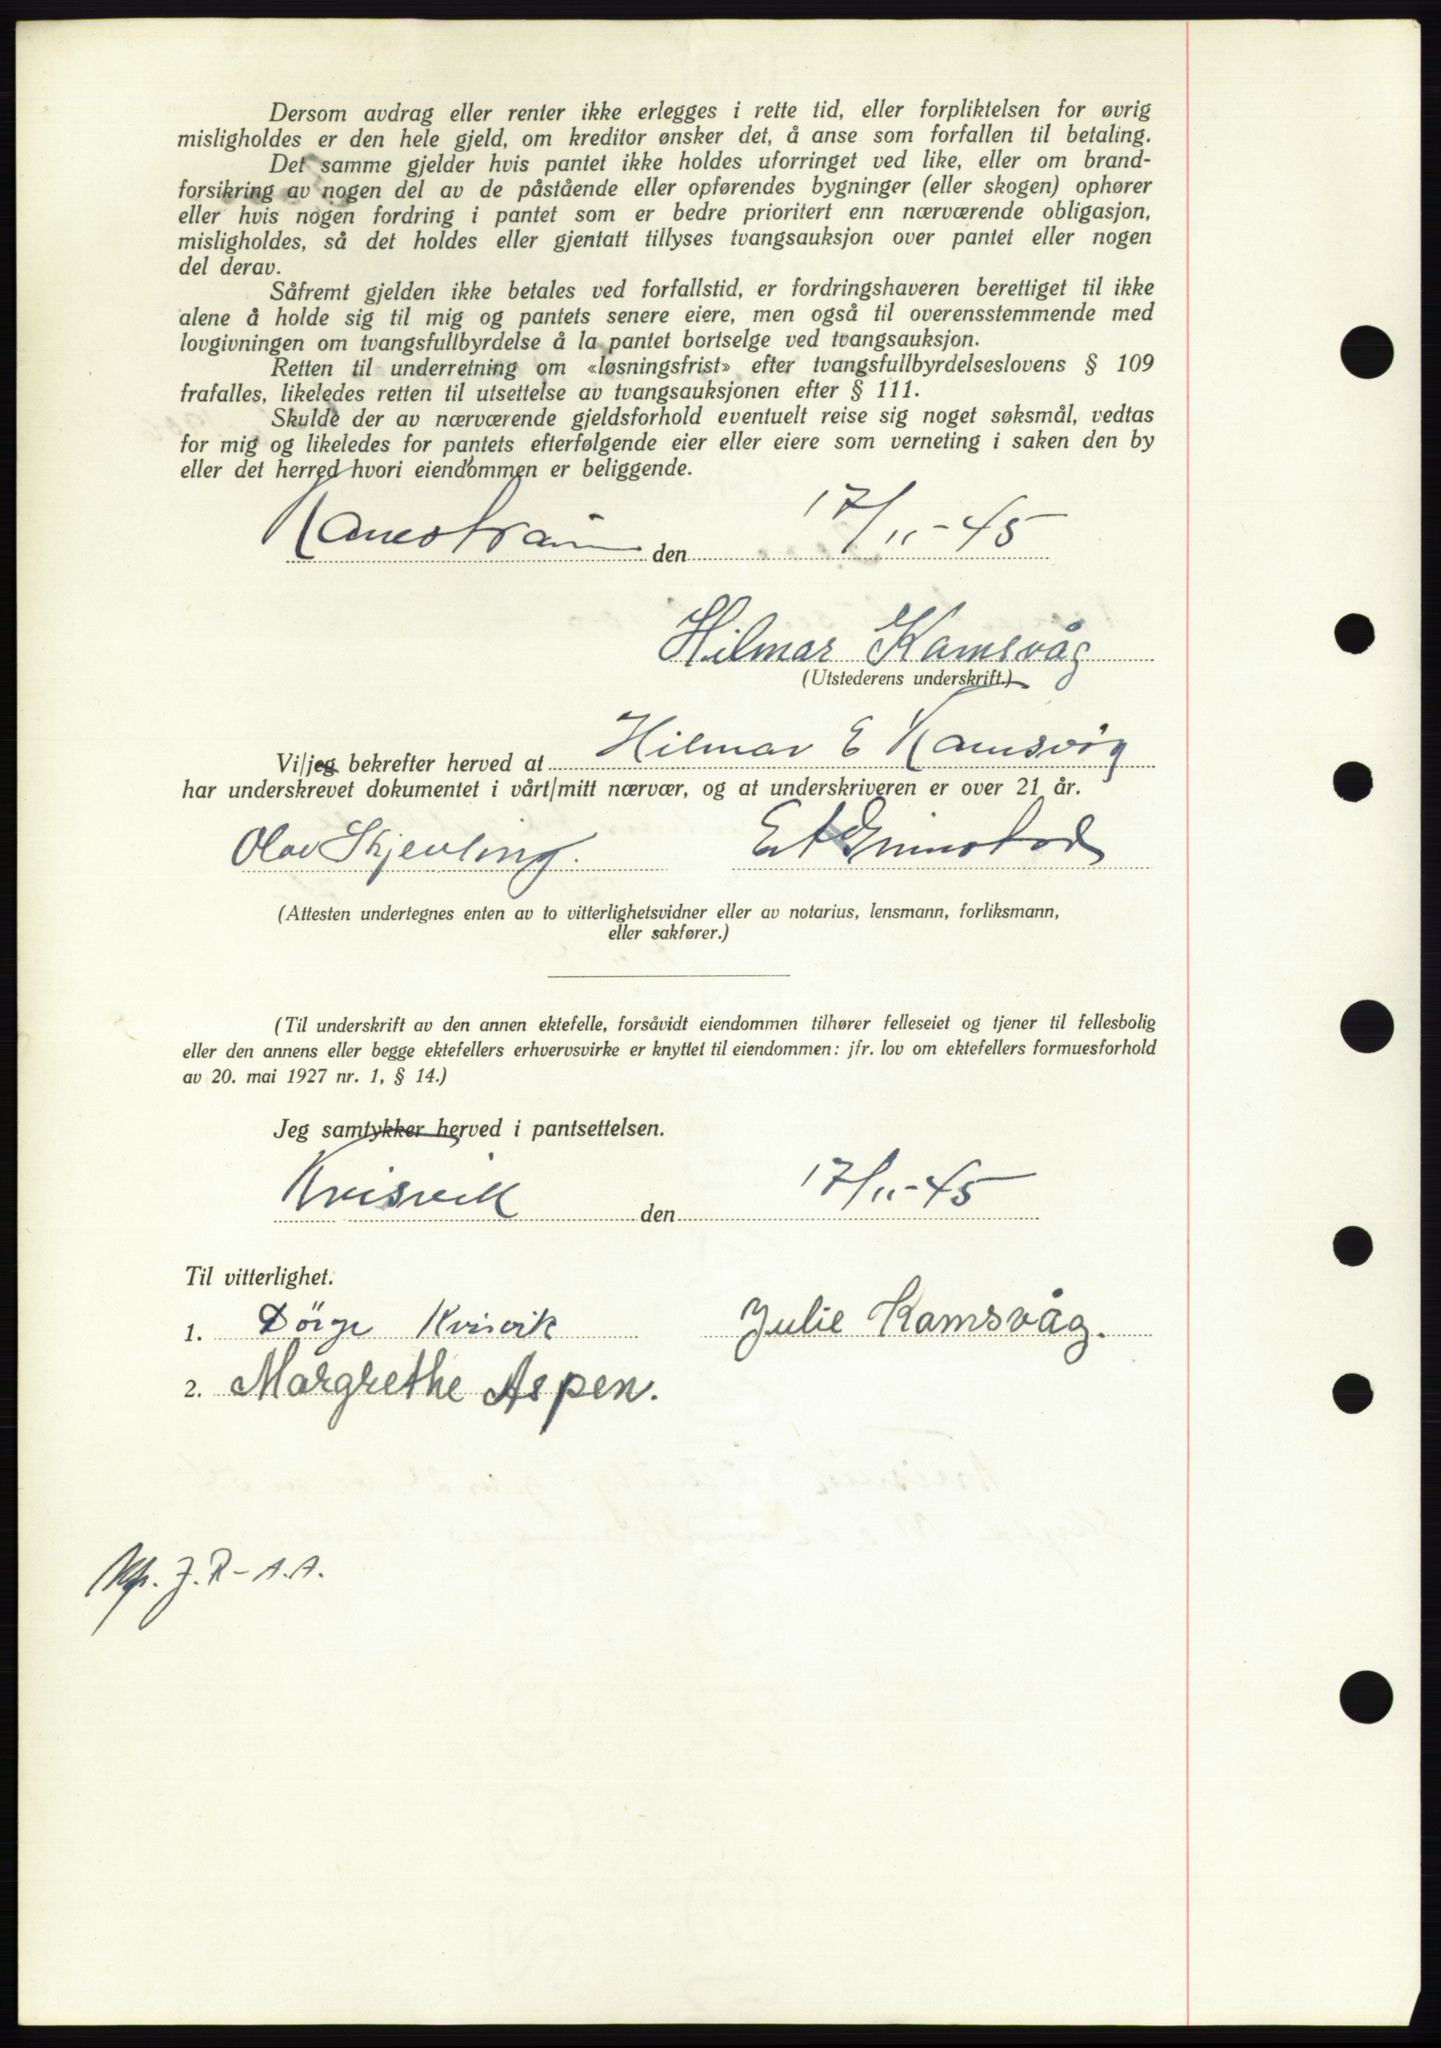 Dersom avdrag eller renter ikke erlegges i rette tid, eller forpliktelsen for øvrig
misligholdes er den hele gjeld, om kreditor ønsker det, å anse som forfallen til betaling.
Det samme gjelder hvis pantet ikke holdes uforringet ved like, eller om brand-
forsikring av nogen del av de påstående eller opførendes bygninger (eller skogen) ophører
eller hvis nogen fordring i pantet som er bedre prioritert enn nærværende obligasjon,
misligholdes, så det holdes eller gjentatt tillyses tvangsauksjon over pantet eller nogen
del derav.
Såfremt gjelden ikke betales ved forfallstid, er fordringshaveren berettiget til ikke
alene å holde sig til mig og pantets senere eiere, men også til overensstemmende med
lovgivningen om tvangsfullbyrdelse å la pantet bortselge ved tvangsauksjon.
Retten til underretning om «løsningsfrist» efter tvangsfullbyrdelseslovens § 109
frafalles, likeledes retten til utsettelse av tvangsauksjonen efter § 111.
Skulde der av nærværende gjeldsforhold eventuelt reise sig noget søksmål, vedtas
for mig og likeledes for pantets efterfølgende eier eller eiere som verneting i saken den by
eller det herred hvori eiendommen er beliggende.
den 17/11-45
Hilmar Kamsvåg
(Utstederens underskrift.)
Vi/jeg bekrefter herved at Hilmar E Kamsvåg
har underskrevet dokumentet i vårt/mitt nærvær, og at underskriveren er over 21 år.
Olav Skjevling.
(Attesten undertegnes enten av to vitterlighetsvidner eller av notarius, lensmann, forliksmann,
eller sakfører.)
(Til underskrift av den annen ektefelle, forsåvidt eiendommen tilhører felleseiet og tjener til fellesbolig
eller den annens eller begge ektefellers erhvervsvirke er knyttet til eiendommen: jfr. lov om ektefellers formuesforhold
av 20. mai 1927 nr. 1, § 14.)
Jeg samtykker herved i pantsettelsen.
Kvisvik den 17/11-45
Til vitterlighet.
1. Dörge Kvisvik Julie Kamsvåg.
2. Margrethe Aspen.
J.R-A.A.